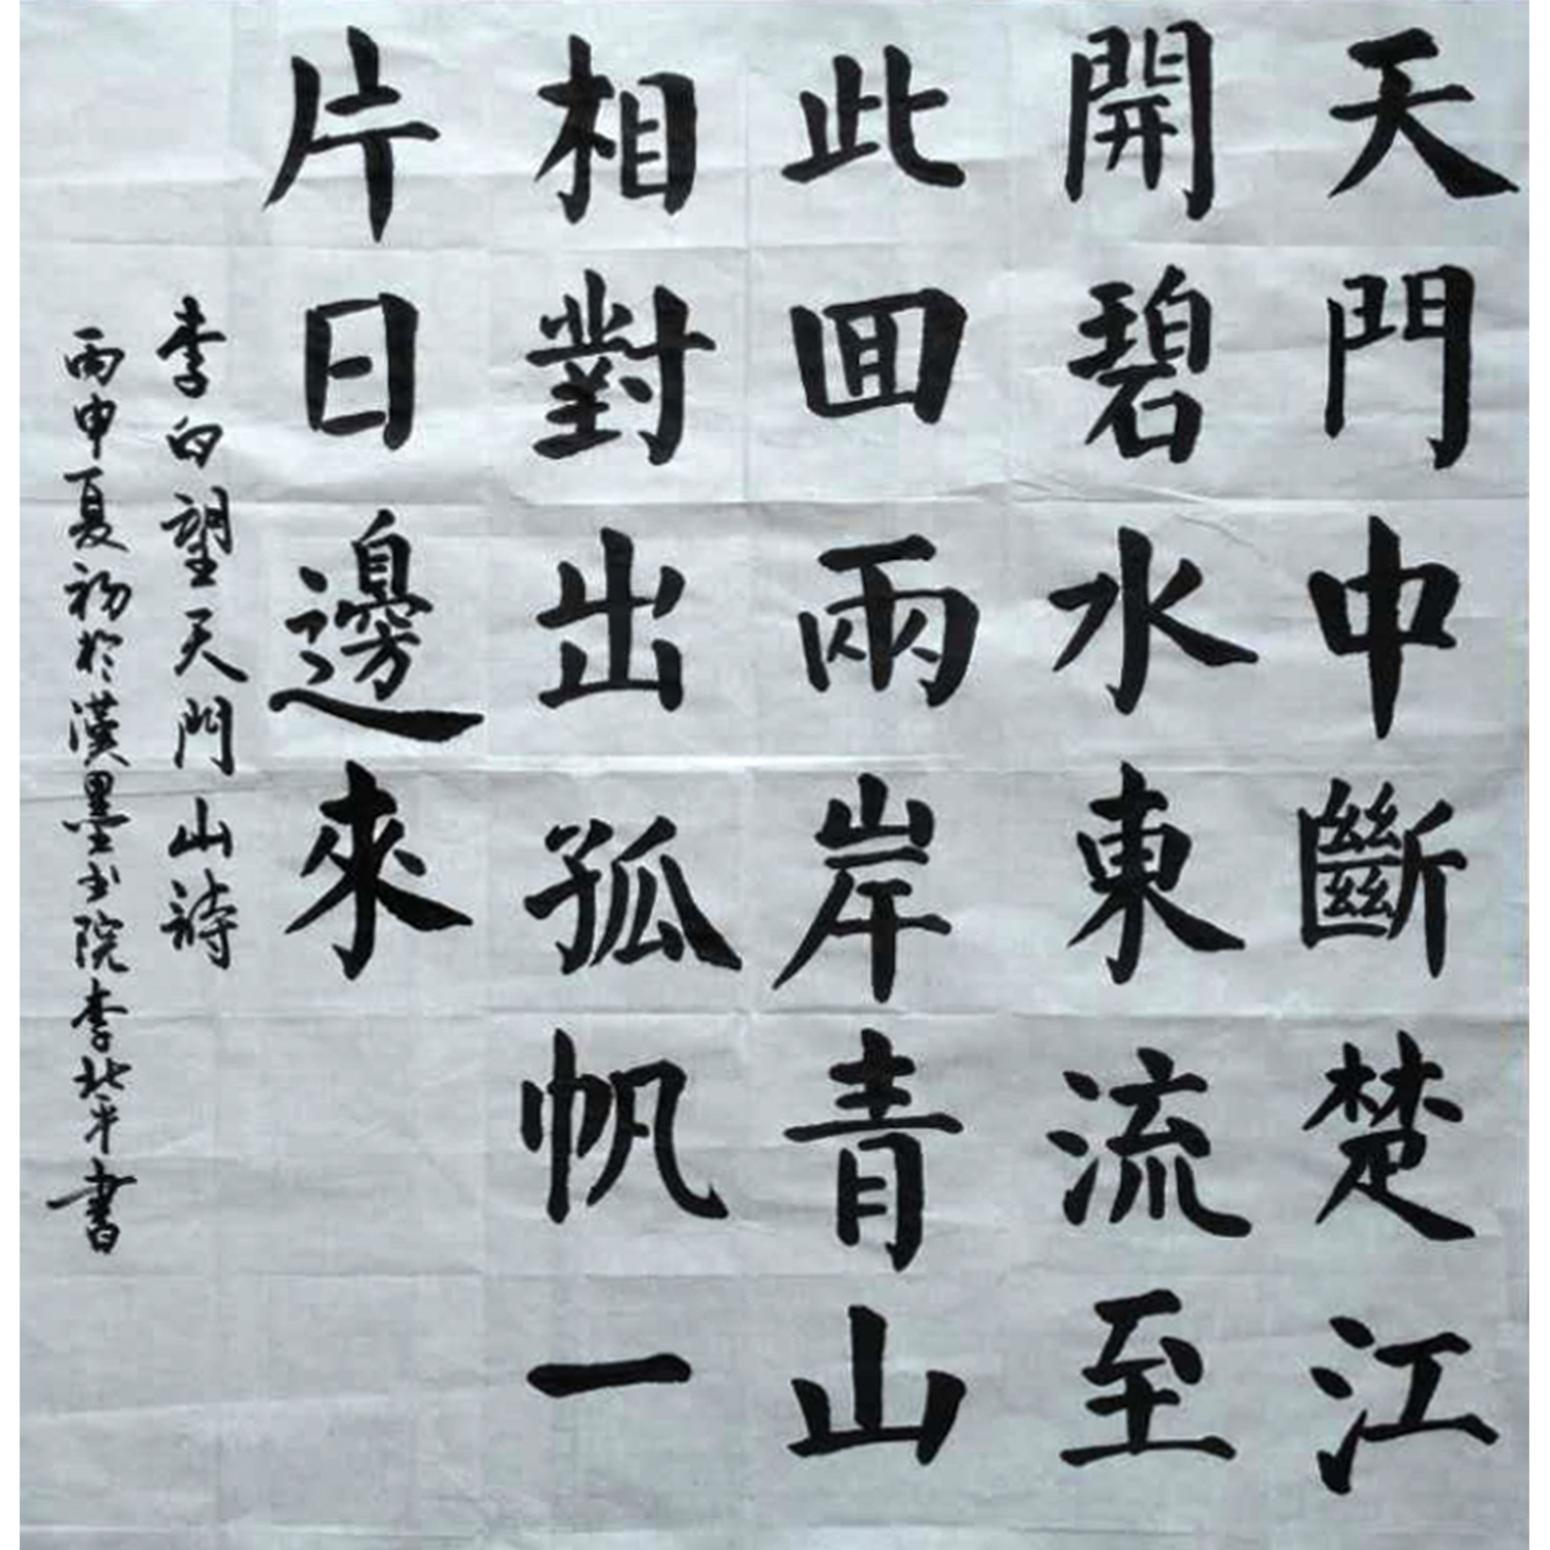 天門中斷楚江
開碧水東流至
此回兩岸青山
相對出孤帆一
片日邊來
李白望天門山詩
丙申夏初於漢墨書院李北平書